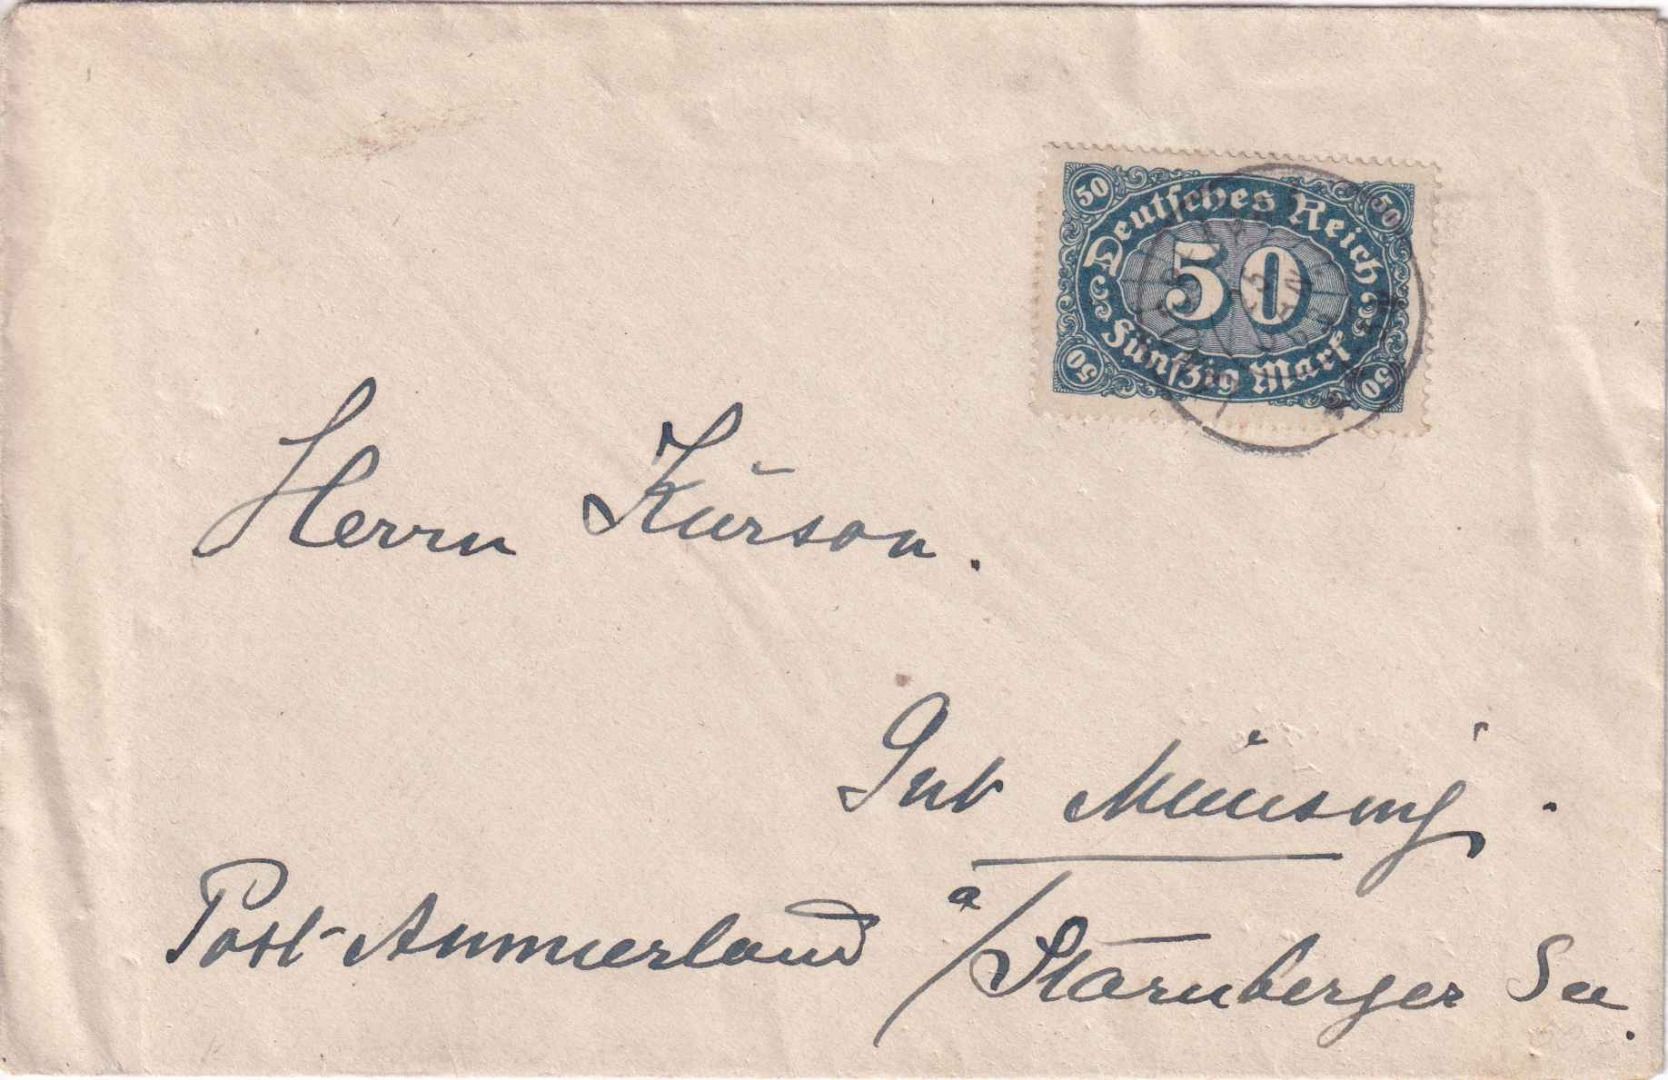 50 50
Deutsches Reich
50
Fünfzig Mark
50 50
Herrn Kürson.
Gut Münsing.
Post-Ammerland a/Starnberger See.